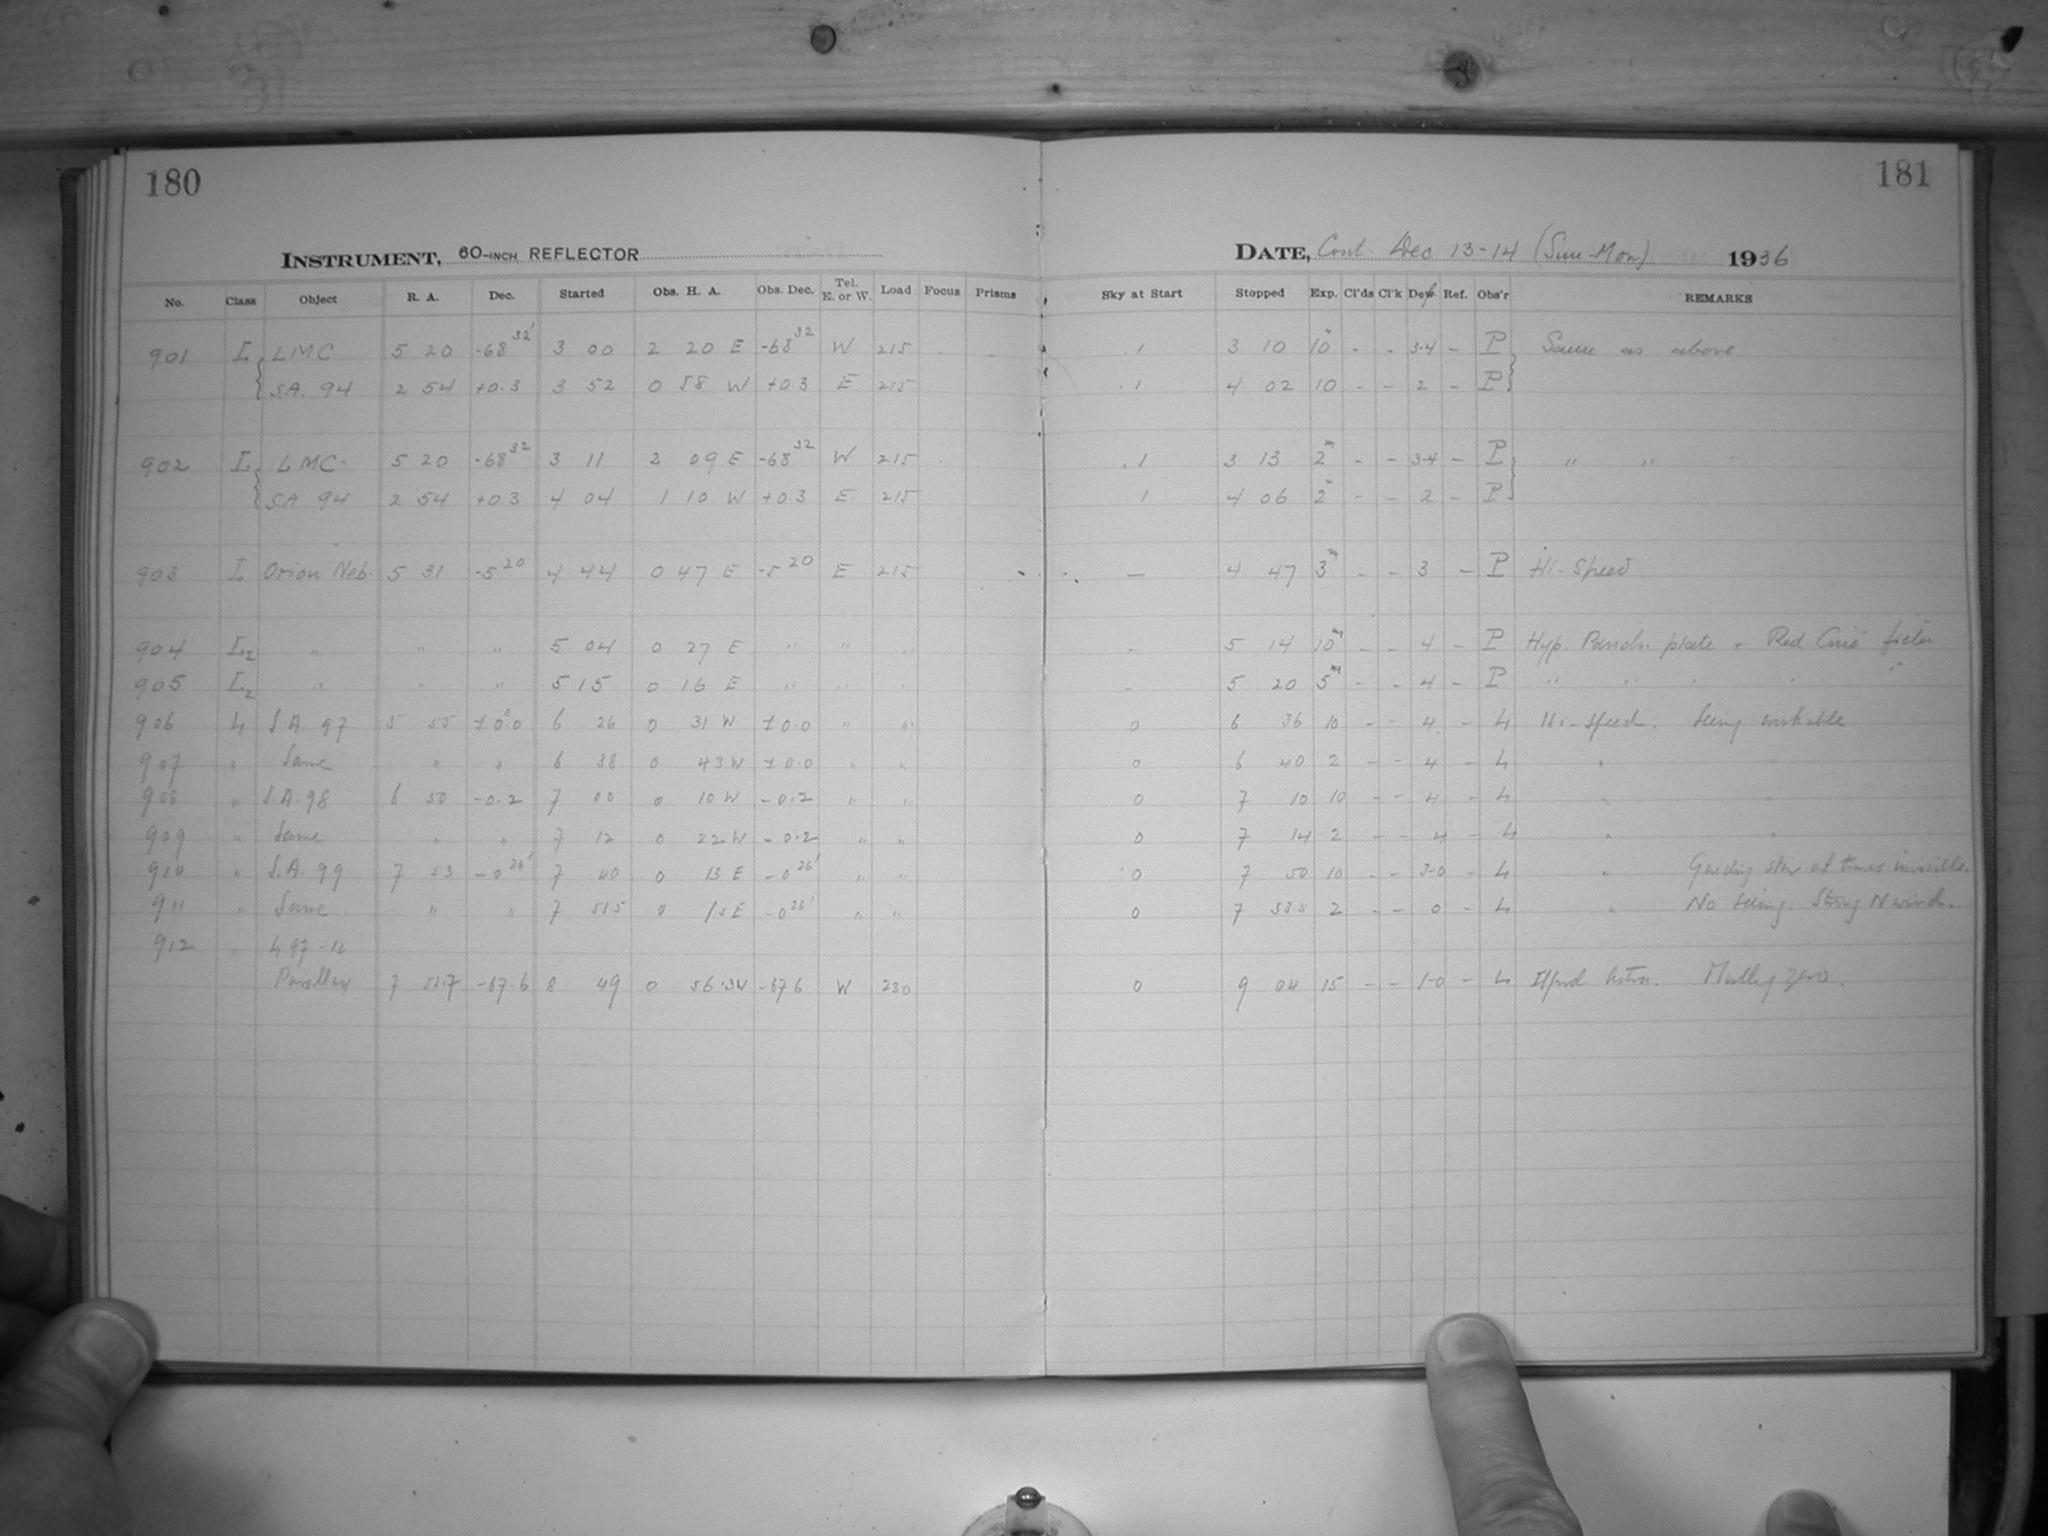 180
181
INSTRUMENT, 60-INCH REFLECTOR
DATE, Cont. Dec 13-14 (Sun-Mon) 1936
No. Class Object R. A. Dec. Started Obs. H. A. Obs. Dec. Tel. E. or W. Load Focus Prisms Sky at Start Stopped Exp. Cl'ds Cl'k Def. Ref. Obs'r REMARKS
901 I LMC 5 20 -68 32' 3 00 2 20 E -68 32 W 215 - - .1 3 10 10 - - 3-4 - P Same as above
S.A. 94 2 54 +0.3 3 52 0 58 W +0.3 E 215 .1 4 02 10 - - 2 - P
902 I LMC 5 20 -68 32 3 11 2 09 E -68 32 W 215 .1 3 13 2m - - 3-4 - P " " "
SA 94 2 54 +0.3 4 04 1 10 W +0.3 E 215 1 4 06 2 - - 2 - P
903 I Orion Neb. 5 31 -5 20 4 44 0 47 E -5 20 E 215 - 4 47 3m - - 3 - P Hi-Speed
904 I2 " " " 5 04 0 27 E " " " - 5 14 10m - - 4 - P Hyp. Panch. plate + Red Ciné filter
905 I2 " " " 5 15 0 16 E " " " - 5 20 5m - - 4 - P " " " " "
906 L S.A. 97 5 55 ±0.0 6 26 0 31 W ±0.0 " " 0 6 36 10 - - 4 - L Hi-speed. Seeing workable
907 " Same " " 6 38 0 43 W ±0.0 " " 0 6 40 2 - - 4 - L " "
908 " S.A. 98 6 50 -0.2 7 00 0 10 W -0.2 " " 0 7 10 10 - - 4 - L " "
909 " Same " " 7 12 0 22 W -0.2 " " 0 7 14 2 - - 4 - L " "
910 " S.A. 99 7 53 -0 26' 7 40 0 13 E -0 26' " " 0 7 50 10 - - 3-0 - L " Guiding star at times invisible.
911 " Same " " 7 515 0 1.5 E -0 26' " " 0 7 535 2 - - 0 - L " No seeing. Strong N wind.
912 " L 97-12
Parallax 7 51.7 -67.6 8 49 0 56.3W -67 6 W 230 0 9 04 15 - - 1-0 - L Ilford Astra. Mostly zero.